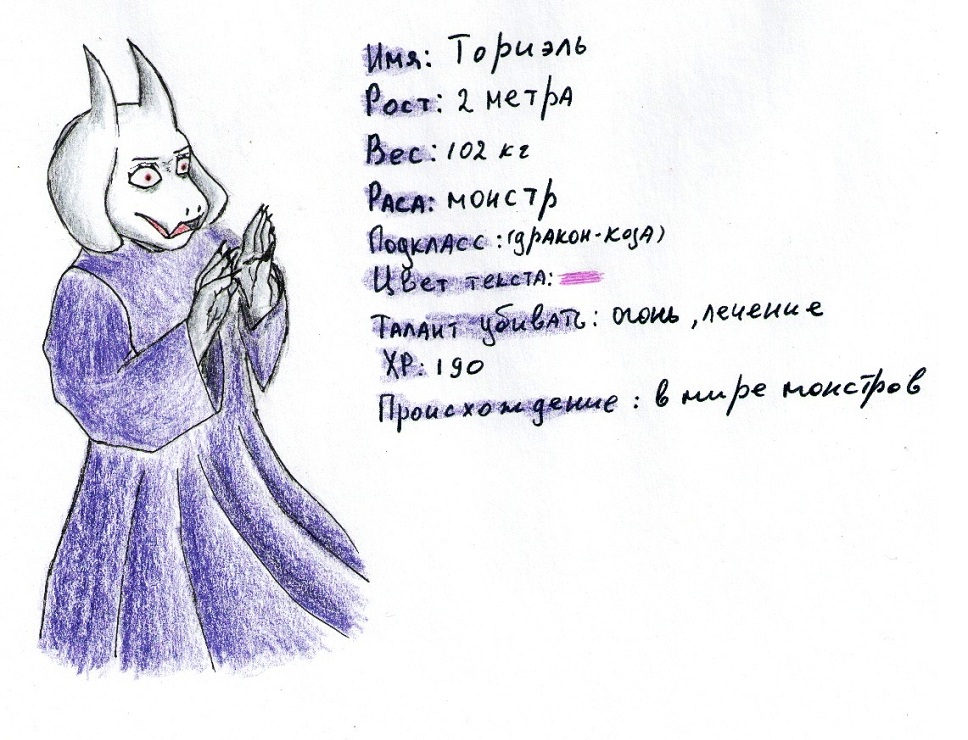 Имя: Ториэль
Рост: 2 метра
Вес: 102 кг
Раса: монстр
Подкласс: (дракон-коза)
Цвет текста:
Талант убивать: огонь, лечение
ХР: 190
Происхождение: в мире монстров